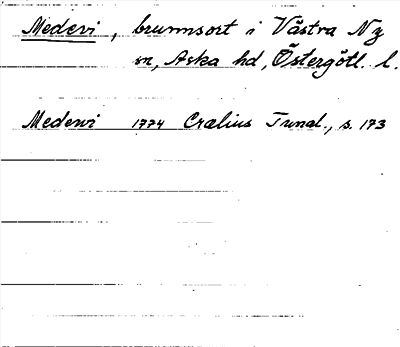 Medevi, brunnsort i Västra Ny
sn, Aska hd, Östergötl. l.
Medewi 1774 Crælius Tunal., s. 173